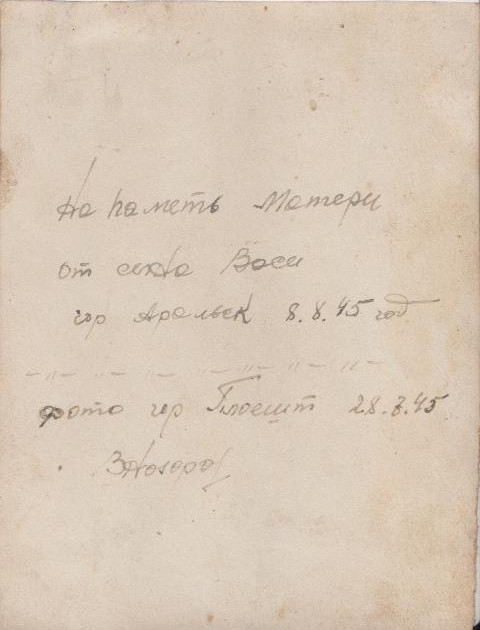 На паметь Матери
от сына Васи
гор Аральск 8.8.45 год
—"—"—"—"—"—"—
фото гор Плоешт 28.3.45